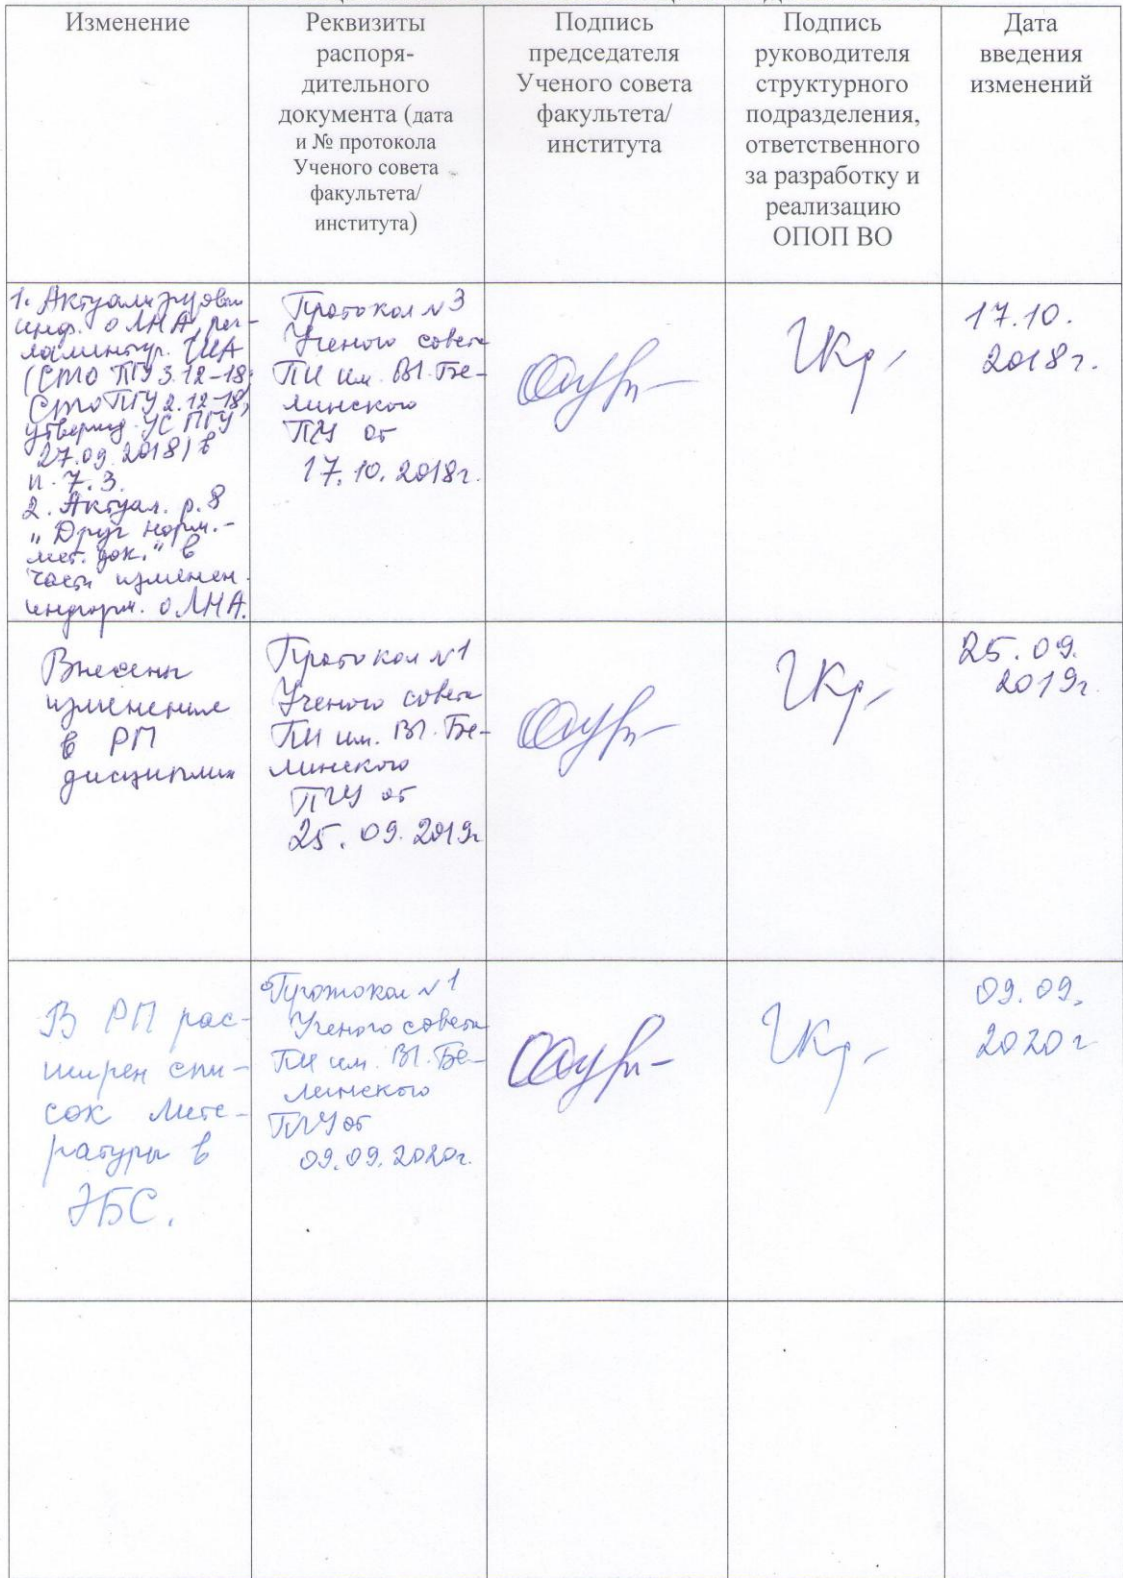 Изменение
Реквизиты
распоря-
дительного
документа (дата
и № протокола
Ученого совета
факультета/
института)
Подпись
председателя
Ученого совета
факультета/
института
Подпись
руководителя
структурного
подразделения,
ответственного
за разработку и
реализацию
ОПОП ВО
Дата
введения
изменений
1. Актуализирован
инф. о ЛНА, рег-
ламентир. ГИА
(СТО ПГУ 3.12-18,
СТО ПГУ 2.12-18,
утвержд. УС ПГУ
27.09.2018) в
п. 7.3.
2. Актуал. р. 8
"Друг норм.-
мет. док." в
части изменен.
информ. о ЛНА.
Протокол №3
Ученого совета
ПИ им. В.Г. Бе-
линского
ПГУ от
17.10.2018г.
17.10.
2018г.
Внесены
изменения
в РП
дисциплин
Протокол №1
Ученого совета
ПИ им. В.Г. Бе-
линского
ПГУ от
25.09.2019г
25.09.
2019г.
В РП рас-
ширен спи-
сок лите-
ратуры в
ЭБС.
Протокол №1
Ученого совета
ПИ им. В.Г. Бе-
линского
ПГУ от
09.09.2020г.
09.09.
2020г